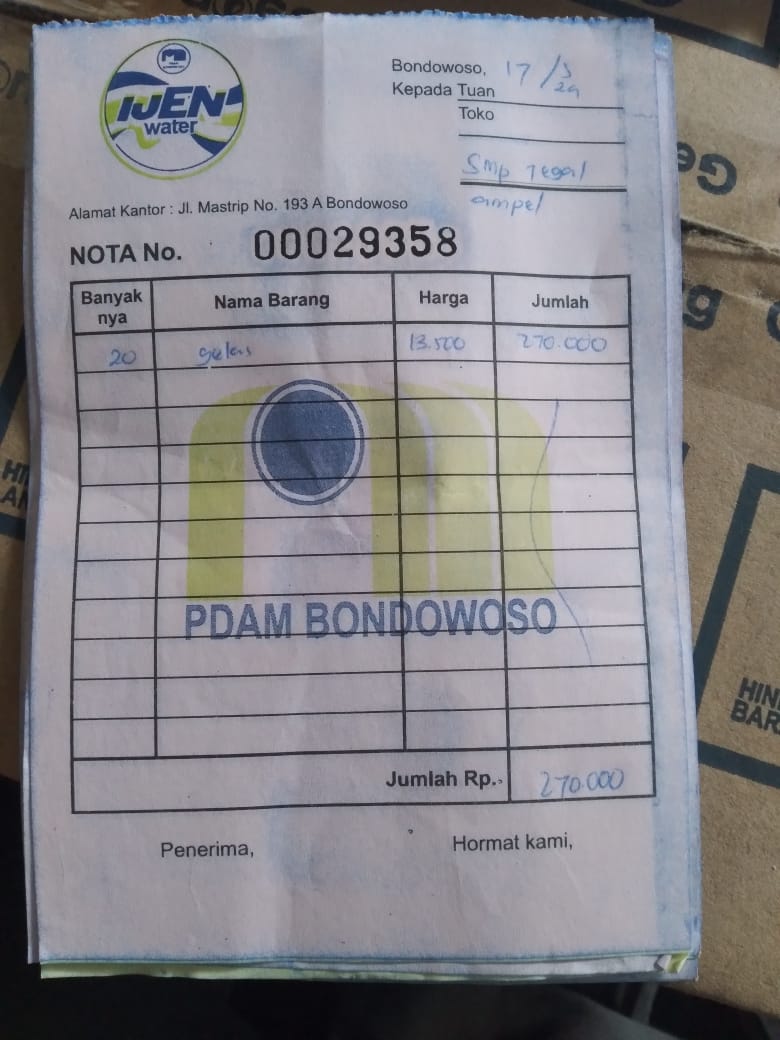 IJEN
water
Bondowoso, 17/5 24
Kepada Tuan
Toko
Smp Tegal
ampel
Alamat Kantor : Jl. Mastrip No. 193 A Bondowoso
NOTA No. 00029358
Banyak nya Nama Barang Harga Jumlah
20 gelas 13.500 270.000
PDAM BONDOWOSO
Jumlah Rp. 270.000
Penerima, Hormat kami,
HIN
BAR